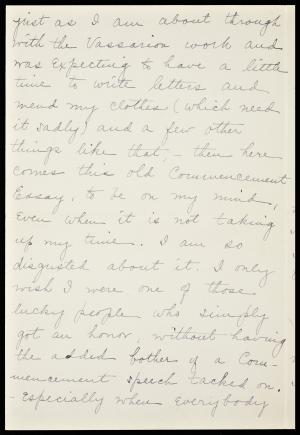 just as I am about through
with the Vassarion work and
was expecting to have a little
time to write letters and
mend my clothes (which need
it sadly) and a few other
things like that, - then here
comes this old Commencement
Essay, to be on my mind,
even when it is not taking
up my time. I am so
disgusted about it. I only
wish I were one of those
lucky people who simply
got an honor, without having
the added bother of a Com-
mencement speech tacked on.
- Especially when everybody